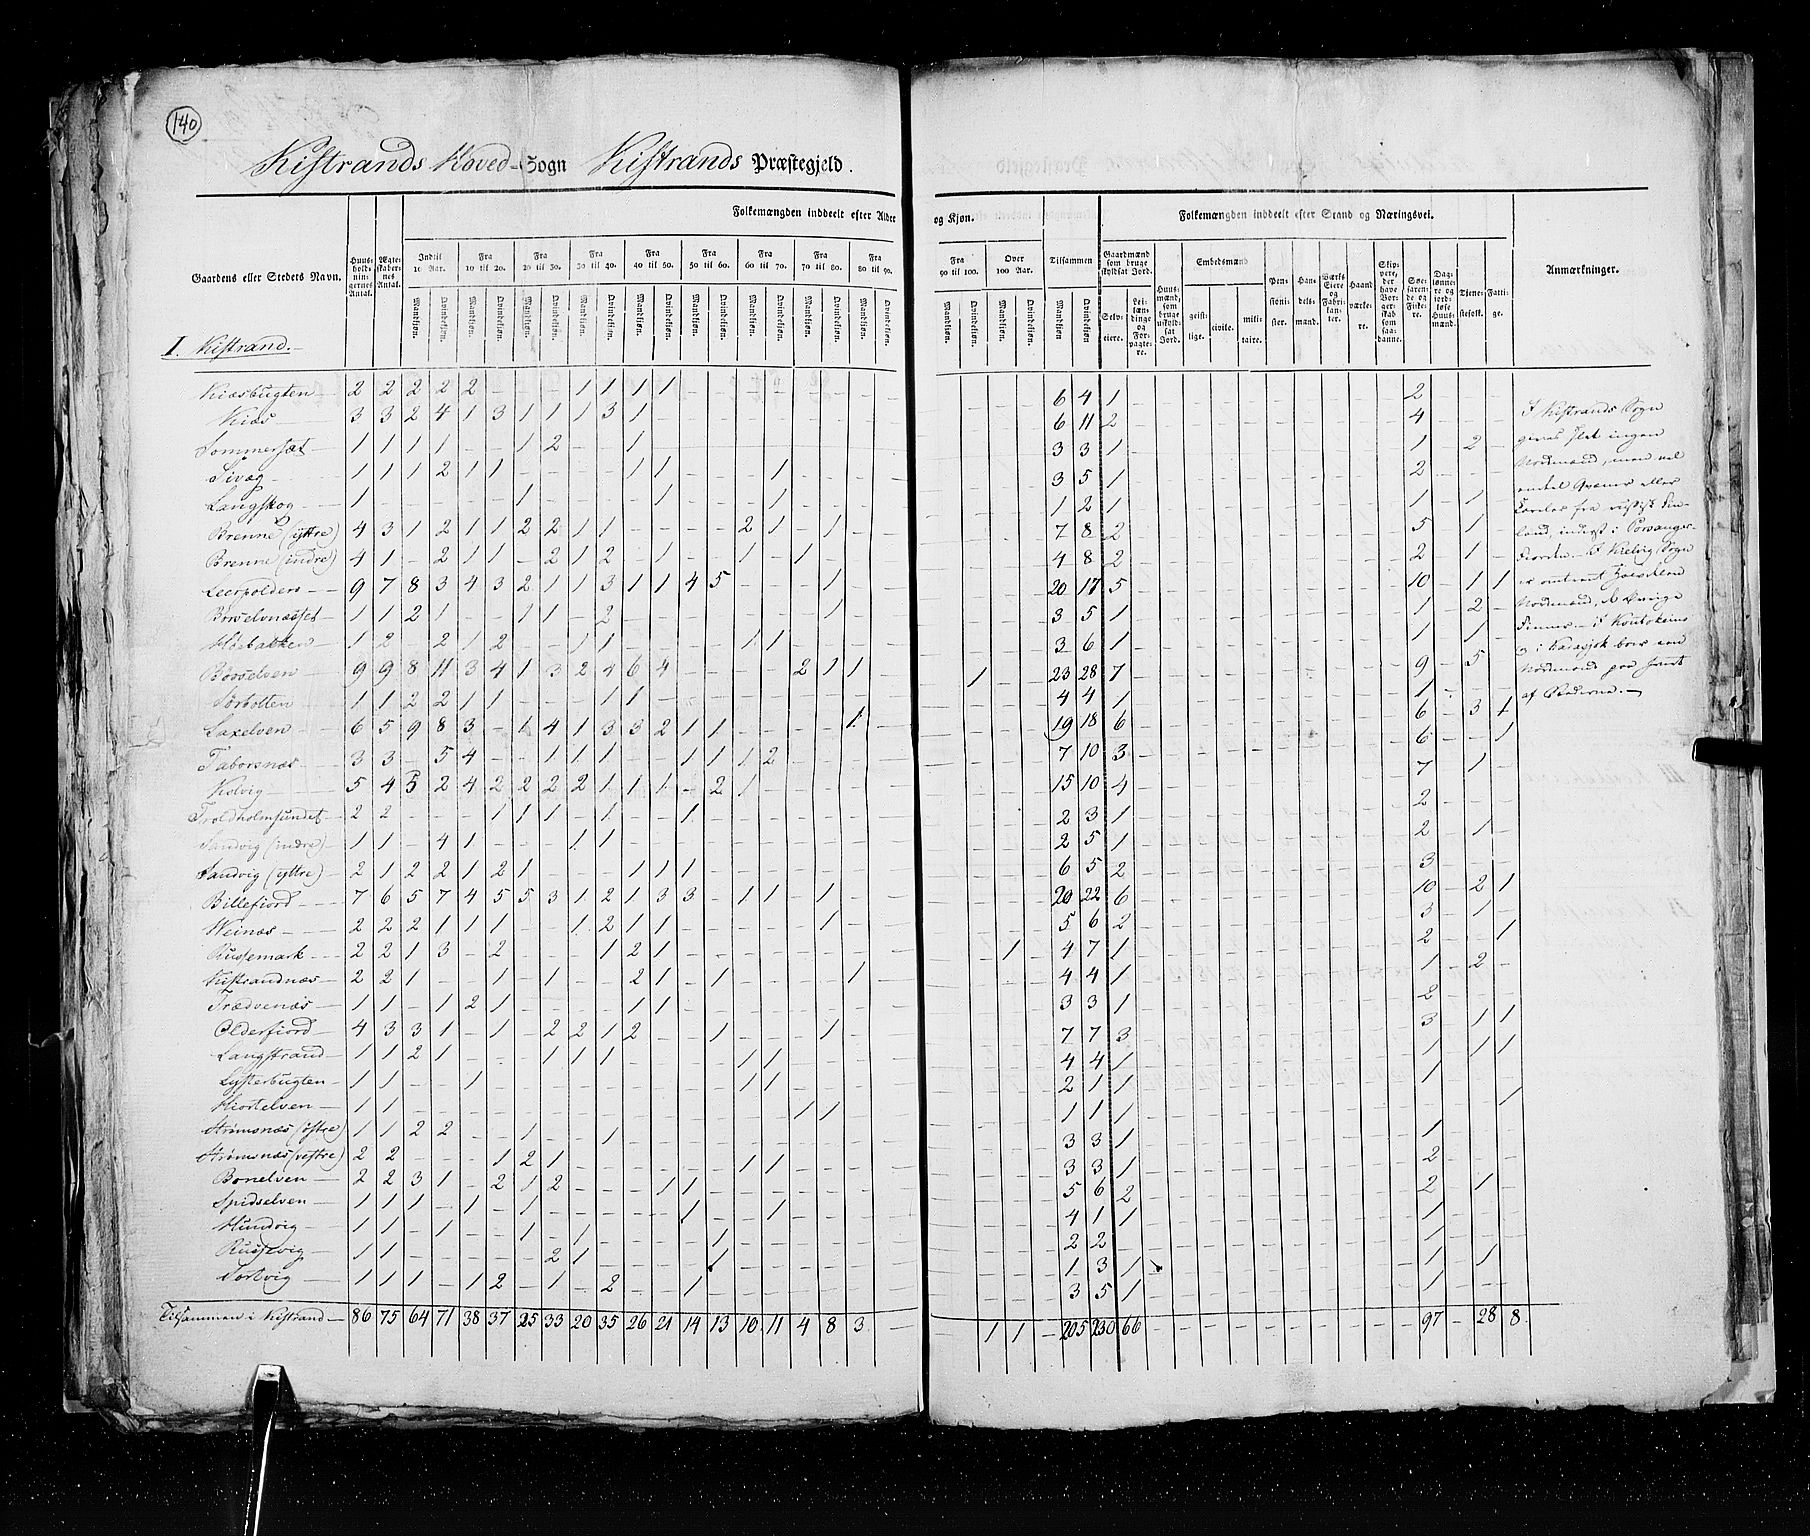 140
Kistrands Hoved-Sogn Kistrands Præstegjeld.
Gaardens eller Steders Navn.
Huusholdningernes Antal.
Ægteskabernes Antal.
Folkemængden inddeelt efter Alder og Kjøn.
Indtil 10 Aar. Fra 10 til 20. Fra 20 til 30. Fra 30 til 40. Fra 40 til 50. Fra 50 til 60. Fra 60 til 70. Fra 70 til 80. Fra 80 til 90. Fra 90 til 100. Over 100 Aar. Tilsammen
Mandkjøn. Qvindekjøn.
Folkemængden inddeelt efter Stand og Næringsvei.
Gaardmænd som bruge skyldsat Jord.
Selveiere. Leilændinge og Forpagtere.
Huusmænd, som bruge uskyldsat Jord.
Embedsmænd
geistlige. civile. militaire.
Pensionister.
Handelsmænd.
Værks Eiere og Fabrikanter.
Haandværkere.
Skippere, der have Borgerskab som saadanne.
Søefarende og Fiskere.
Daglønnere og jordløse Huusmænd.
Tjenestefolk.
Fattige.
Anmærkninger.
I. Kistrand.
Kiæsbugten 2 2 2 2 2 - - - 1 1 1 1 6 4 1 2
Kiæs 3 3 2 4 1 3 1 1 1 3 1 6 11 2 4
Sommersæt 1 1 1 1 - - 1 2 - - 1 3 3 1 1 - 2
Sivæg 1 1 1 2 1 1 - - - - 1 1 - - - 1 3 5 1 2
Langskog 1 - - - - - 1 - - - - 1 - - - 1 1 2 1 1 - 1
Brenne (yttre) 4 3 1 2 1 1 2 2 1 1 - - - - 2 1 - 1 7 8 2 5 - 1
Brenne (indre) 4 1 - 2 1 1 - 2 1 2 - 1 - - 1 - 1 4 8 2 2 - 1
Leerpolden 9 7 8 3 4 3 2 1 1 3 1 1 4 5 - - - 1 20 17 5 10 - 1 1
Børselvnæsset 1 1 2 1 - - 1 1 - 2 - - - - - - - 1 3 5 1 1 - 2
Høebakken 1 2 - 2 1 2 - - 1 1 - - - - 1 1 3 6 1 1 - 1
Børselven 9 9 8 11 3 4 1 3 2 4 6 4 - - - - 2 1 1 - - 1 23 28 7 9 - 5
Sørbotten 1 1 2 2 1 1 - - - 1 1 4 4 1 1
Laxelven 6 5 9 8 3 - 1 4 1 3 3 2 1 1 - - - - 1 19 18 6 6 - 3 1
Taborsnæs 3 3 - 5 4 - - 1 1 1 - - 1 1 1 2 7 10 3 6 - - 1
Kolvig 5 4 5 2 4 2 2 2 2 1 1 1 - 2 1 15 10 4 7 - 1
Troldholmsundet 2 2 - - - 1 1 1 - 1 - - 1 2 3 1 2
Sandvig (indre) 1 1 - 4 1 - - - 1 1 2 5 1 2 - 1
Sandvig (yttre) 2 1 2 2 1 2 1 - - - 1 1 1 6 5 2 3
Billefiord 7 6 5 7 4 5 5 3 1 2 1 3 3 - 1 1 - 1 20 22 6 10 - 2 1
Weinæs 2 2 2 1 1 1 - - 1 2 1 1 - - - - - 1 5 6 2 3 - 1
Russemark 2 2 1 3 - 2 - - - 1 2 1 1 4 7 1 2 - - 1
Kistrandnæs 2 2 1 - - 1 - 1 - - 2 1 - 1 - - - - 1 4 4 1 1 - 2
Trædvenæs 1 1 - 1 2 1 - - - - 1 1 3 3 1 2
Olderfiord 4 3 3 1 - 1 - 2 2 1 2 - - 1 - - - 1 7 7 3 3 - 1 1
Langstrand 1 1 2 1 - - - 1 1 1 - - - - 1 1 4 4 1 1 - 1 1
Lysterbugten 1 1 - - 1 - - - - - - - - - 1 1 2 1 1 1
Hiortelven 1 1 - - - - - - - - - - - - - - 1 1 1 1 1 1
Strømsnæs (østre) 1 1 2 2 - - 1 - - 1 3 3 1 1
Strømsnæs (vestre) 2 2 - - - 1 2 1 - - - - - - 1 1 3 3 1 2
Bonelven 2 2 3 1 - 2 1 2 - - - 1 1 5 6 2 2 - 1
Spidselven 1 1 1 - 1 - 1 - - - - - 1 - - 1 4 1 1 1
Hundvig 1 1 - 1 - - 1 - 1 - - - - 1 2 2 - 1
Russevig 1 1 - - - - - 2 1 - - - - 1 1 3 1 1 - 1
Sortvig 1 1 1 - 1 2 - 1 - 2 - - 1 3 5 1 1
Tilsammen i Kistrand 86 75 64 71 38 37 25 33 20 35 26 21 14 13 10 11 4 8 3 - - 1 1 - 205 230 66 97 - 28 8
I Kistrands Sogn
gives slet ingen
Nordmænd, men vel
enkel Qvæner eller
Careler fra russisk Fin-
land, inderst i Porsanger-
fiorden. I Kielvig Sogn
er omtrent
Nordmænd, de øvrige
Finner. I Koutokeino
og i Karasjok boer een
Nordmand paa hvert
af Stederne.